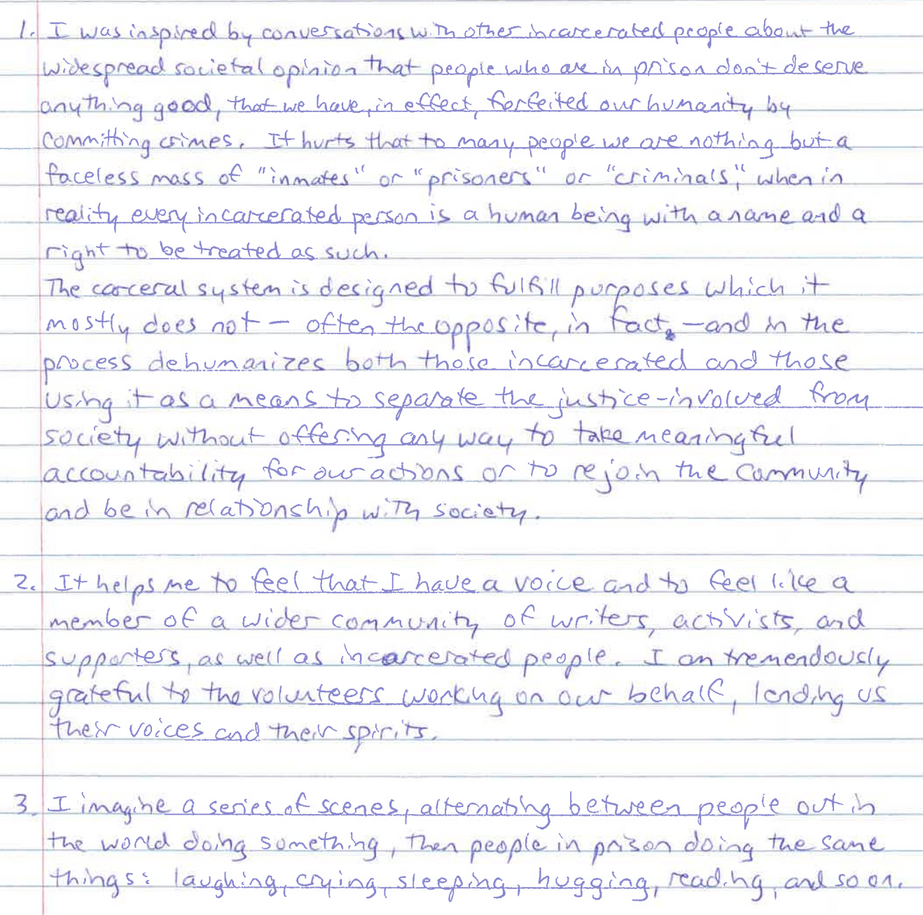 1. I was inspired by conversations with other incarcerated people about the
widespread societal opinion that people who are in prison don't deserve
anything good, that we have, in effect, forfeited our humanity by
committing crimes. It hurts that to many people we are nothing but a
faceless mass of "inmates" or "prisoners" or "criminals," when in
reality every incarcerated person is a human being with a name and a
right to be treated as such.
The carceral system is designed to fulfill purposes which it
mostly does not – often the opposite, in fact, – and in the
process dehumanizes both those incarcerated and those
using it as a means to separate the justice-involved from
society without offering any way to take meaningful
accountability for our actions or to rejoin the community
and be in relationship with society.
2. It helps me to feel that I have a voice and to feel like a
member of a wider community of writers, activists, and
supporters, as well as incarcerated people. I am tremendously
grateful to the volunteers working on our behalf, lending us
their voices and their spirits.
3. I imagine a series of scenes, alternating between people out in
the world doing something, then people in prison doing the same
things: laughing, crying, sleeping, hugging, reading, and so on.